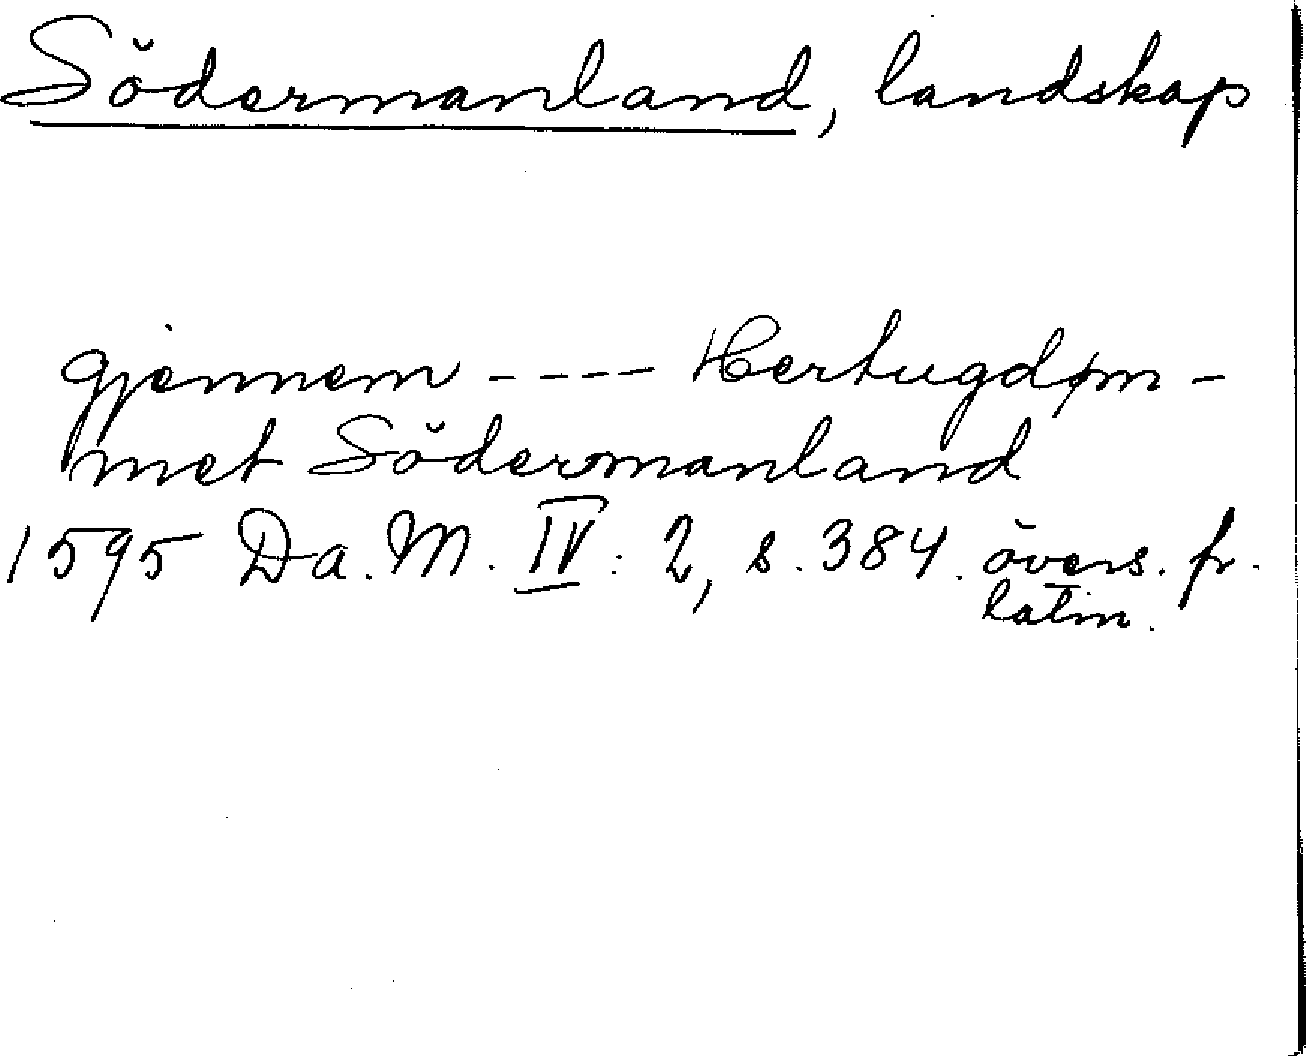 Södermanland, landskap
gjennem ---- Hertugdøm-
met Södermanland
1595 Da. M. IV: 2, s. 384. övers. fr.
latin.